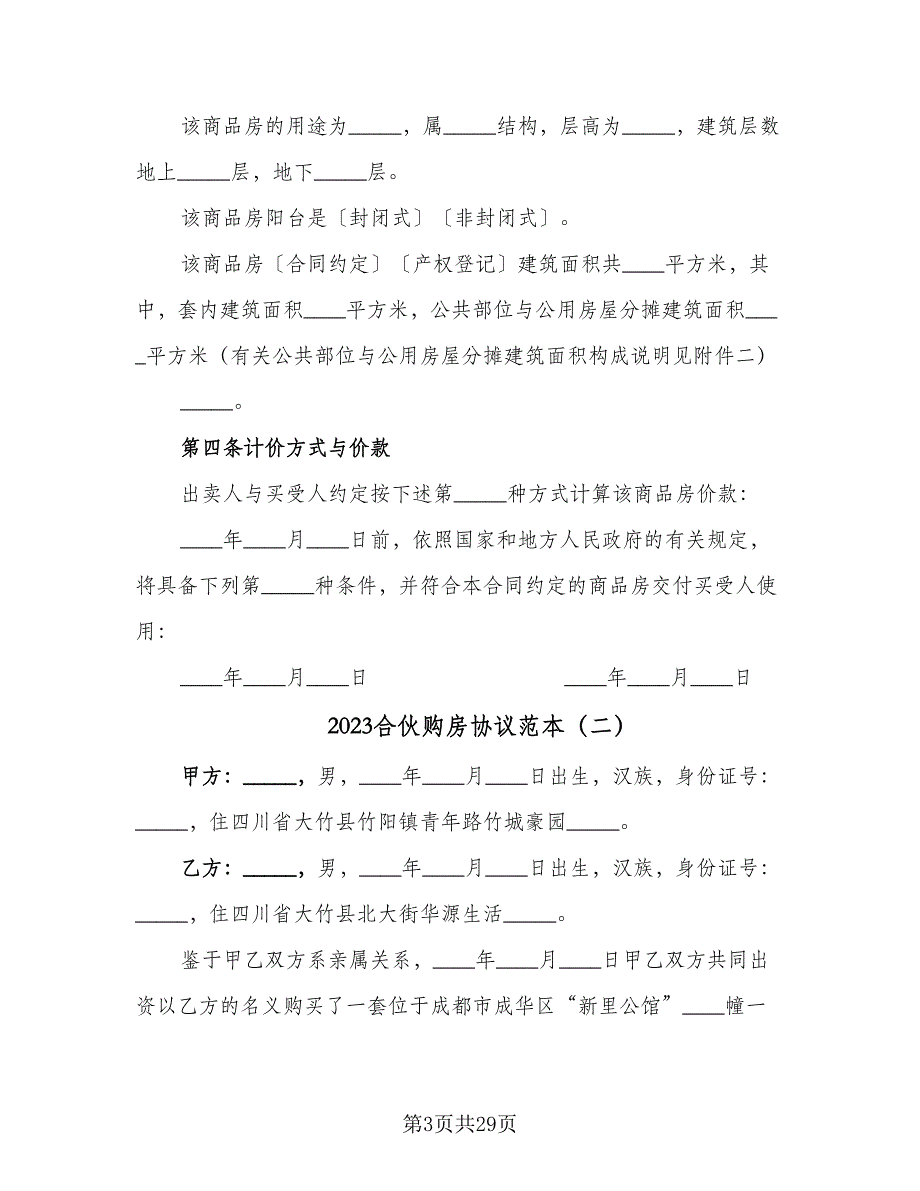 该商品房的用途为_____，属_____结构，层高为_____，建筑层数
地上_____层，地下_____层。
该商品房阳台是〔封闭式〕〔非封闭式〕。
该商品房〔合同约定〕〔产权登记〕建筑面积共____平方米，其
中，套内建筑面积____平方米，公共部位与公用房屋分摊建筑面积___
_平方米（有关公共部位与公用房屋分摊建筑面积构成说明见附件二）
_____。
第四条计价方式与价款
出卖人与买受人约定按下述第_____种方式计算该商品房价款：
____年____月____日前，依照国家和地方人民政府的有关规定，
将具备下列第_____种条件，并符合本合同约定的商品房交付买受人使
用：
____年____月____日 ____年____月____日
2023合伙购房协议范本（二）
甲方：_____，男，____年____月____日出生，汉族，身份证号：
_____，住四川省大竹县竹阳镇青年路竹城豪园_____。
乙方：_____，男，____年____月____日出生，汉族，身份证号：
_____，住四川省大竹县北大街华源生活_____。
鉴于甲乙双方系亲属关系，____年____月____日甲乙双方共同出
资以乙方的名义购买了一套位于成都市成华区“新里公馆”____幢一
第3页共29页